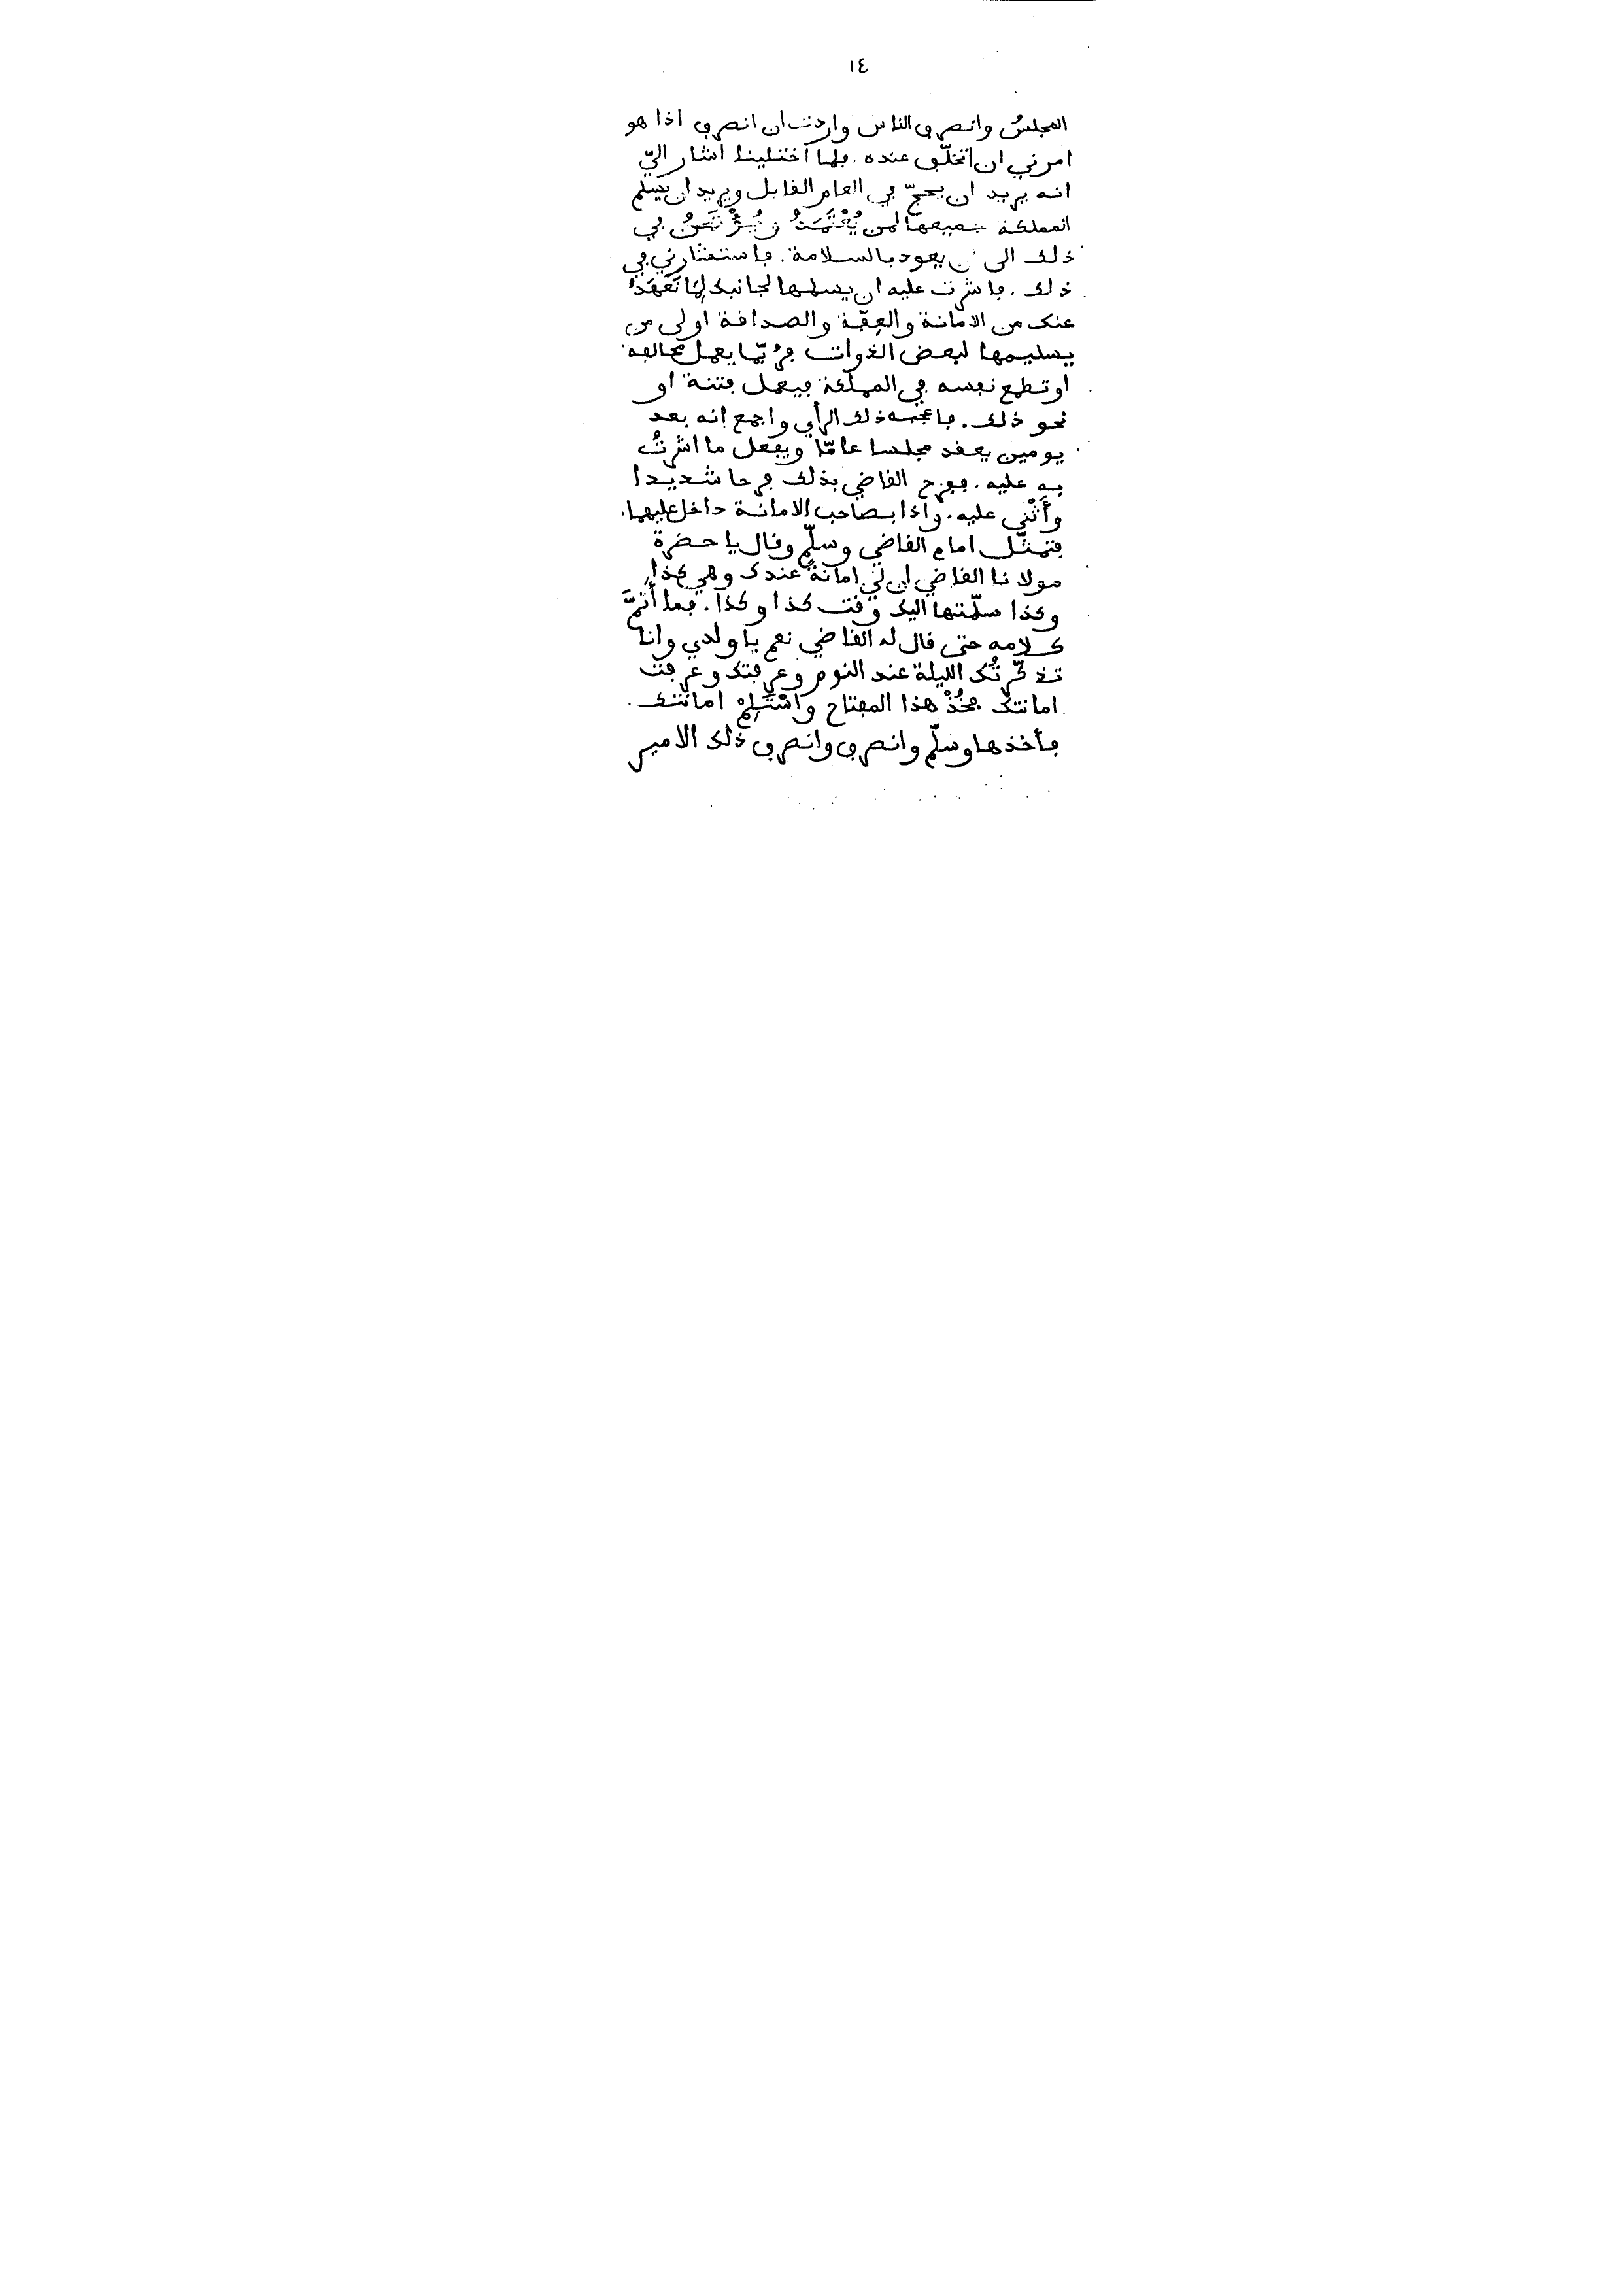 ١٤
المجلسُ وانصرف الناس واردت ان انصرف اذا هو
امرني ان اتخلّف عنده . فلما اختلينا اشار اليّ
انه يريد ان يحجّ في العام القابل ويريد ان يسلم
المملكة جميعها لمن يُعْتَمَدُ ويُؤْتَمَنُ في
ذلك الى ان يعود بالسلامة . فاستشارني في
ذلك . فاشرت عليه ان يسلمها لجانبك لِمَا تَعَهَدَهُ
عنك من الامانة والعِفّة والصداقة اولى من
يسليمها لبعض الذوات فرُبّما يعمل مخالفة
او تطمع نفسه في المملكة فيعمل فتنة او
نحو ذلك . فاعجبه ذلك الرأي واجمع انه بعد
يومين يعقد مجلسا عامّا ويفعل ما اشرتُ
به عليه . ففرح القاضي بذلك فرحا شديدا
وأَثْنى عليه . واذا بصاحب الامانة داخل عليهما .
فتمثّل امام القاضي وسلّم وقال يا حضرة
مولانا القاضي ان لي امانةً عندك وهي كذا
وكذا سلّمتها اليك وقت كذا وكذا . فما أَتَمَّ
كلامه حتى قال له القاضي نعم يا ولدي وانا
تذكّرتُك الليلة عند النوم وعرفتك وعرفت
امانتك فخُذْ هذا المفتاح واسْتَلِمْ امانتك .
فأخذها وسلّم وانصرف وانصرف ذلك الامير